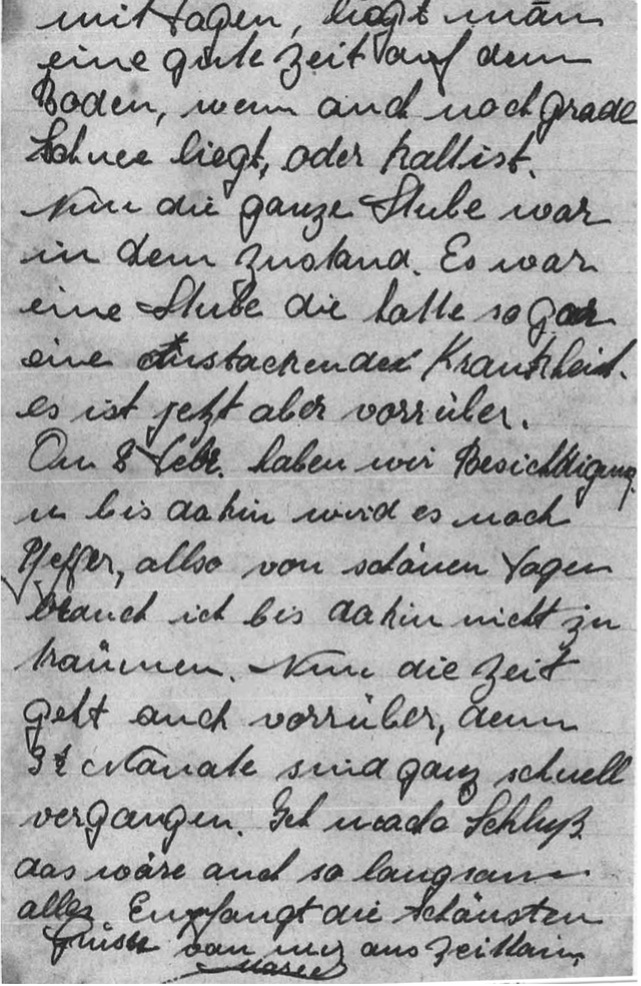 mit sagen, liegt man
eine gute Zeit auf dem
Boden, wenn auch noch grade
Schnee liegt, oder kalt ist.
Nun die ganze Stube war
in dem zustand. Es war
eine Stube die hatte sogar
eine Anstackender Krankheit.
es ist jetzt aber vorrüber.
Am 8 Febr. haben wir Besichtigung
u bis dahin wird es noch
Pfeffer, allso von schönen Tagen
brauch ich bis dahin nicht zu
träumen. Nun die Zeit
geht auch vorrüber, denn
Monate sind ganz schnell
vergangen. Ich mache Schluß
das wäre auch so langsam
alles. Empfangt die schönsten
Grüsse von mir aus Zeithain,